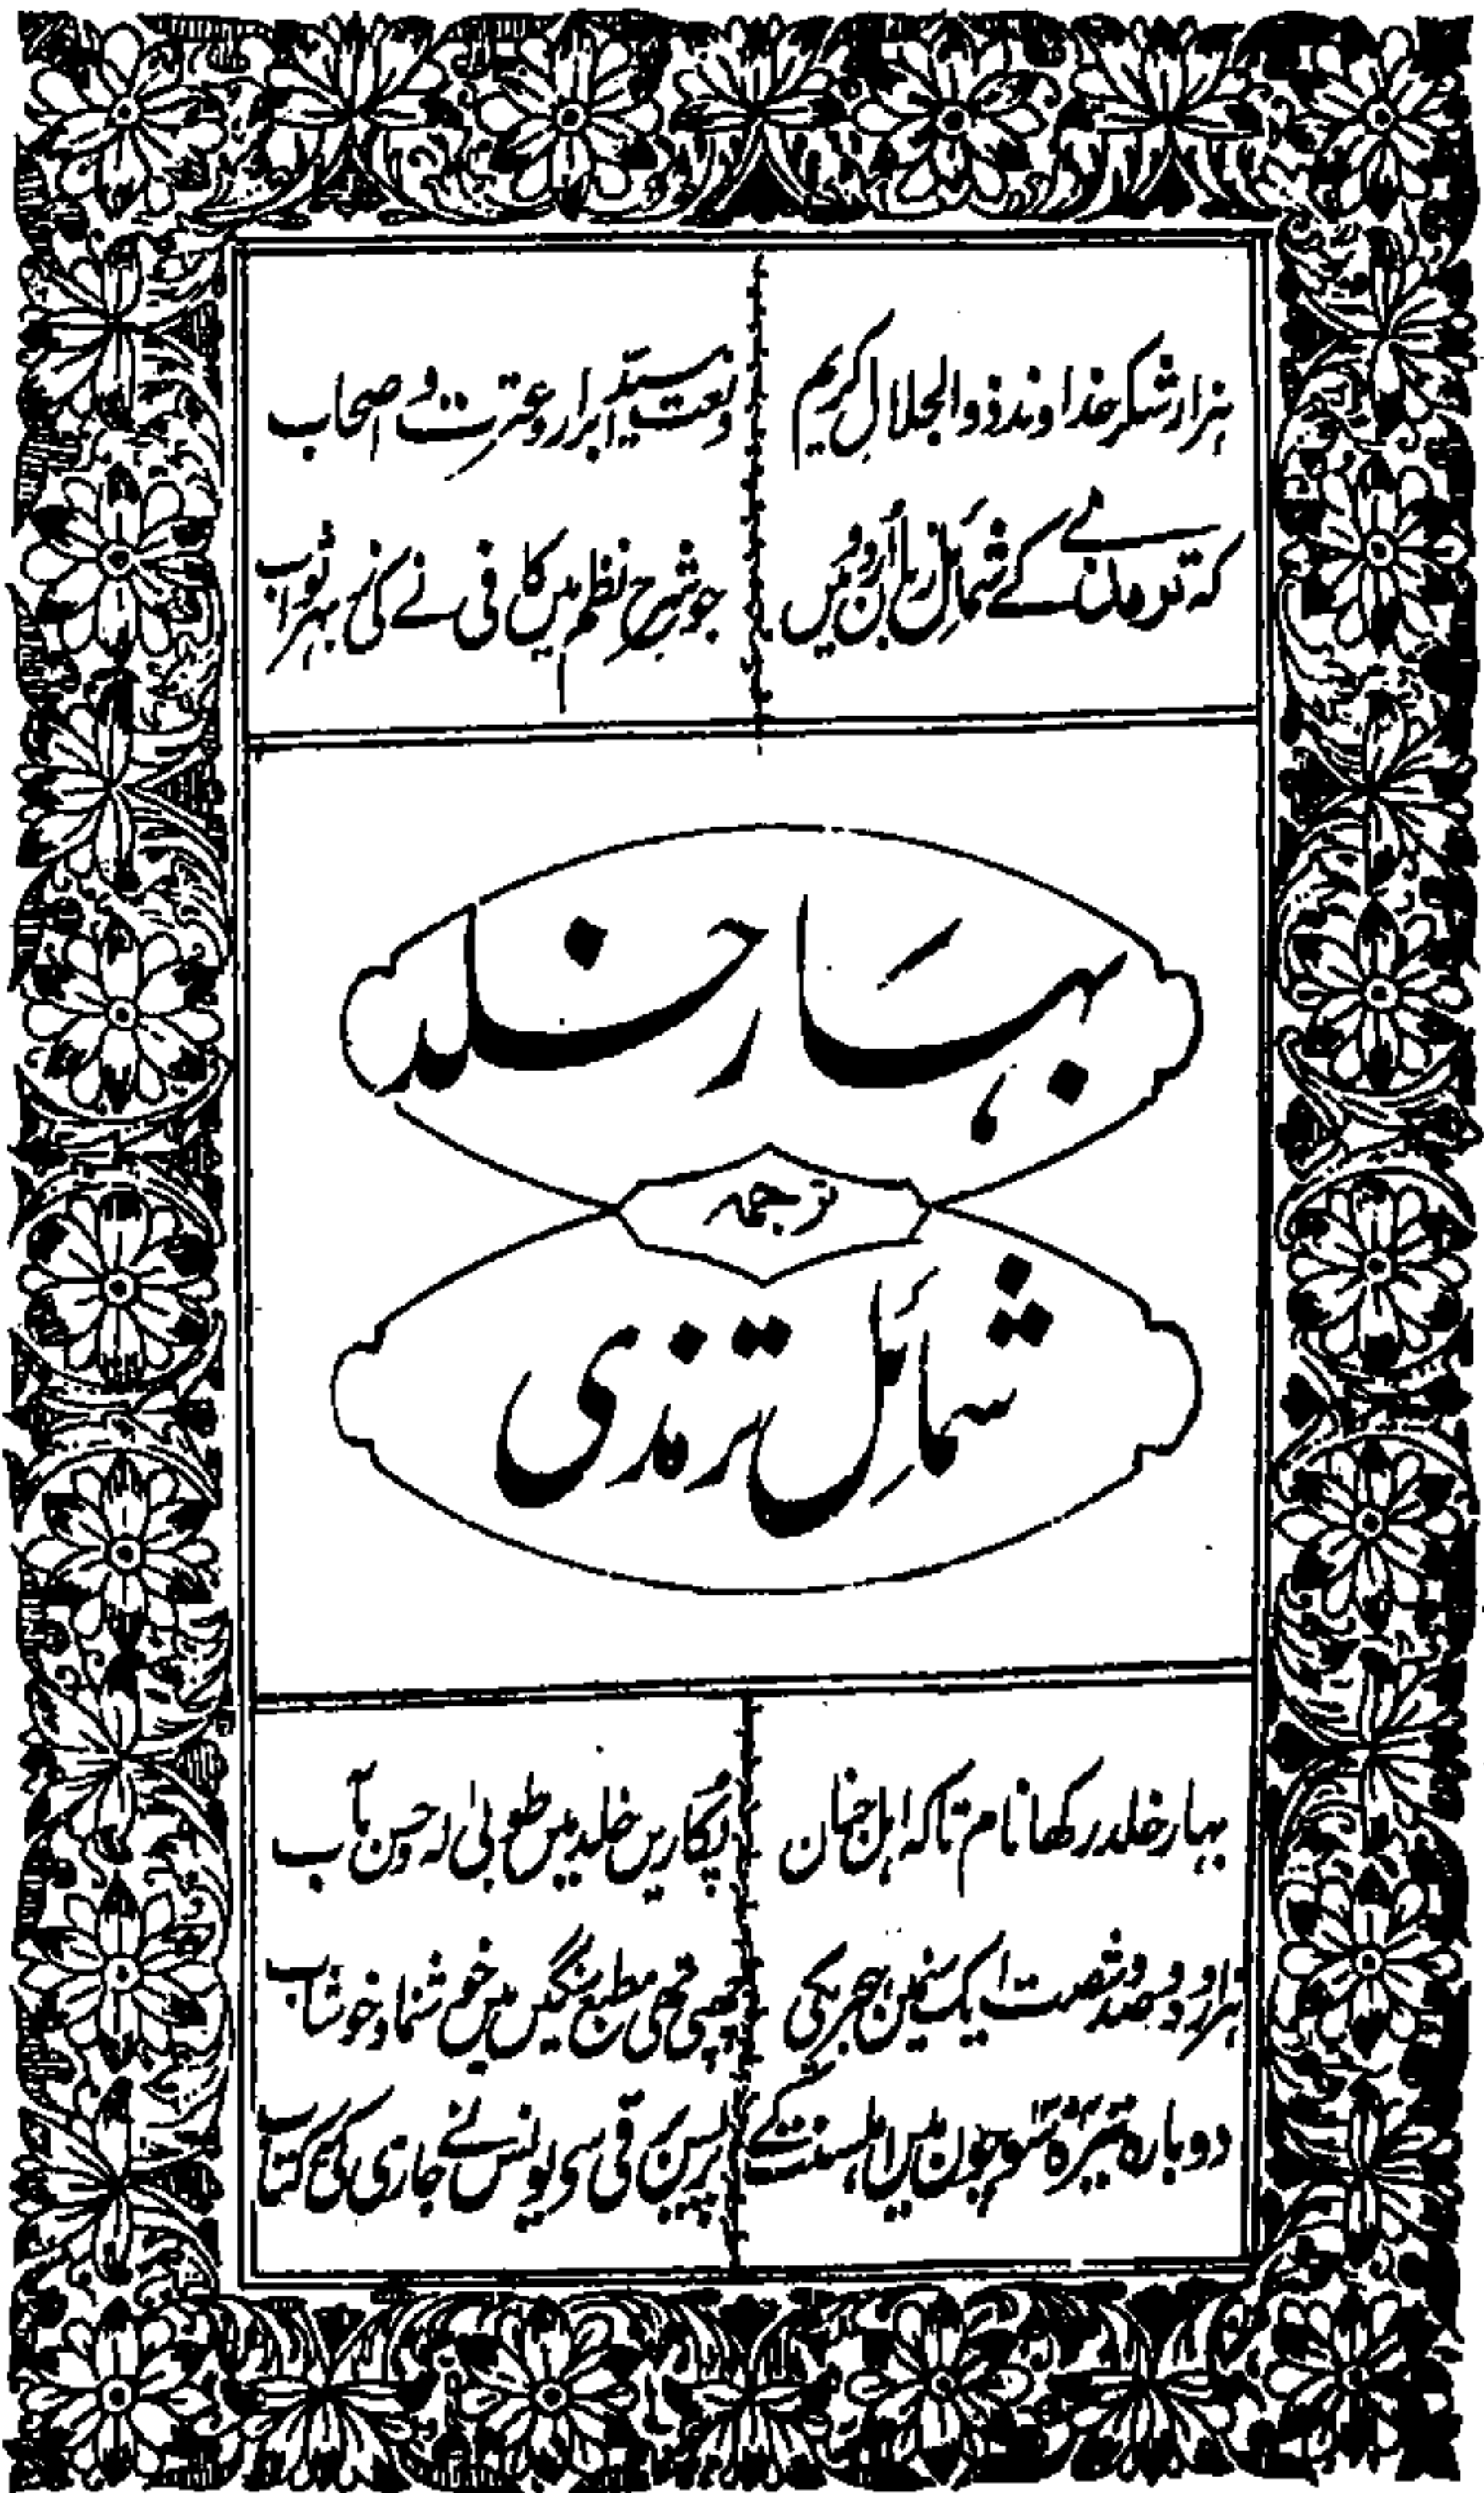 ہزار شکر خداوند ذو الجلال کریم
ونعت سید ابرار و عترت و اصحاب
کہ ترمذی کے شمائل زبان اُردو میں
جو شرح نظم میں کافی نے کی بہر ثواب
بہارِ خلد
ترجمہ
شمائلِ ترمذی
بہار خلد رکھا نام تاکہ اہل جہان
پکاریں خلد میں طوبیٰ لہ و حسن مآب
ہزار و دو صد و شصت ایک سنین ہجر یکی
چھپی تھی مطبع سنگیں میں خوشنما و خوشاب
دوبارہ تیرہ سو چون میں اہلسنت کے
پریس برقی سے یونس نے جاری کی یہ کتاب